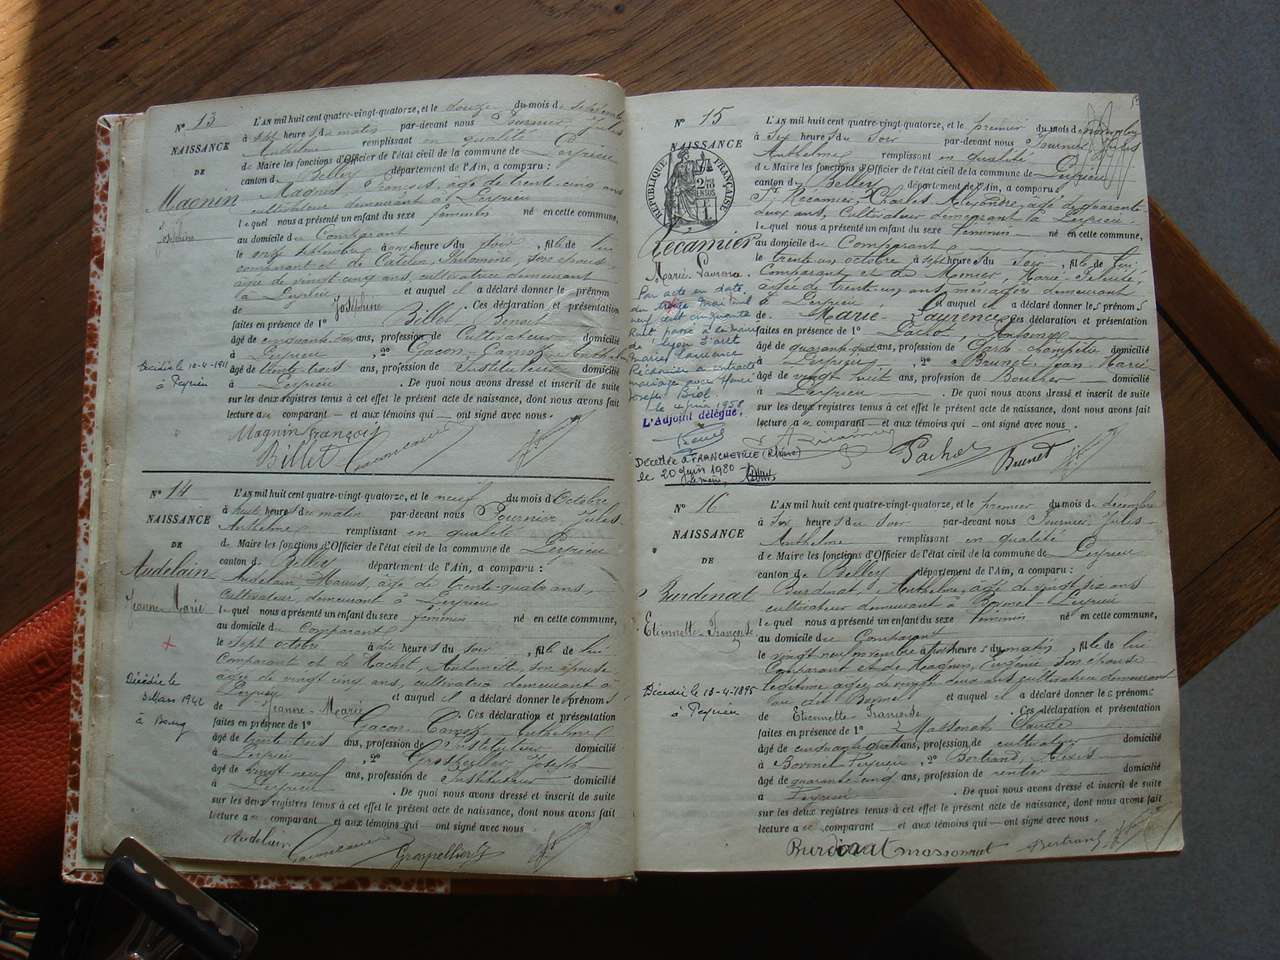 N° 13
NAISSANCE
DE
Magnin
Joséphine
Décédée le 10-4-191
à Peyrieu
L'AN mil huit cent quatre-vingt-quatorze, et le douze du mois de septembre
à sept heures du matin par-devant nous Fournier Jules
Anthelme remplissant en qualité
de Maire les fonctions d'Officier de l'état civil de la commune de Peyrieu
canton de Belley département de l'Ain, a comparu :
Magnin François, âgé de trente cinq ans
cultivateur demeurant à Peyrieu
lequel nous a présenté un enfant du sexe féminin né en cette commune,
au domicile du Comparant
le onze septembre à onze heures du soir, fille de lui
comparant et de Philomène, son épouse
âgée de vingt cinq ans, cultivatrice demeurant
à Peyrieu et auquel il a déclaré donner le prénom
de Joséphine. Ces déclaration et présentation
faites en présence de 1° Billet Benoit
âgé de cinquante ans, profession de Cultivateur domicilié
à Peyrieu, 2° Gacon-Camoz Anthelme
âgé de trente trois ans, profession de Instituteur domicilié
à Peyrieu. De quoi nous avons dressé et inscrit de suite
sur les deux registres tenus à cet effet le présent acte de naissance, dont nous avons fait
lecture au comparant et aux témoins qui ont signé avec nous.
Magnin François
Billet
N° 14
NAISSANCE
DE
Audelain
Jeanne-Marie
Décédée le
3 Mars 1942
à Bourg
L'AN mil huit cent quatre-vingt-quatorze, et le neuf du mois d'Octobre
à huit heures du matin par-devant nous Fournier Jules
Anthelme remplissant en qualité
de Maire les fonctions d'Officier de l'état civil de la commune de Peyrieu
canton de Belley département de l'Ain, a comparu :
Audelain Marius, âgé de trente quatre ans,
Cultivateur, demeurant à Peyrieu
lequel nous a présenté un enfant du sexe féminin né en cette commune,
au domicile du Comparant
le sept octobre à dix heures du soir, fille de lui
Comparant et de Hachet, Antoinette, son épouse
âgée de vingt cinq ans, cultivatrice demeurant à
Peyrieu et auquel il a déclaré donner les prénoms
de Jeanne-Marie. Ces déclaration et présentation
faites en présence de 1° Gacon Camoz Anthelme
âgé de trente trois ans, profession de Instituteur domicilié
à Peyrieu, 2° Grospellier Joseph
âgé de vingt neuf ans, profession de Instituteur domicilié
à Peyrieu. De quoi nous avons dressé et inscrit de suite
sur les deux registres tenus à cet effet le présent acte de naissance, dont nous avons fait
lecture au comparant et aux témoins qui ont signé avec nous.
Audelain Grospellier
N° 15
NAISSANCE
RÉPUBLIQUE FRANÇAISE
Récamier
Marie-Laurence
Par acte en date
du trois mai mil
neuf cent cinquante
huit passé à la mairie
de Lyon 3 art
Marie Laurence
Récamier a contracté
mariage avec
Joseph
le 4 juin 1958
L'Adjoint délégué,
Décédée à FRANCHEVILLE (Rhône)
le 20 juin 1980
L'AN mil huit cent quatre-vingt-quatorze, et le premier du mois de novembre
à six heures du soir par-devant nous Fournier Jules
Anthelme remplissant en qualité
de Maire les fonctions d'Officier de l'état civil de la commune de Peyrieu
canton de Belley département de l'Ain, a comparu :
Récamier Charles Alexandre, âgé de quarante
deux ans, Cultivateur demeurant à Peyrieu
lequel nous a présenté un enfant du sexe féminin né en cette commune,
au domicile du Comparant
le trente un octobre à sept heures du soir, fille de lui
Comparant et de Monier, Marie
âgée de trente un ans, ménagère demeurant
à Peyrieu et auquel il a déclaré donner les prénoms
de Marie-Laurence. Ces déclaration et présentation
faites en présence de 1° Pachot
âgé de quarante huit ans, profession de Garde champêtre domicilié
à Peyrieu, 2° Brunet Jean Marie
âgé de vingt huit ans, profession de Boucher domicilié
à Peyrieu. De quoi nous avons dressé et inscrit de suite
sur les deux registres tenus à cet effet le présent acte de naissance, dont nous avons fait
lecture au comparant et aux témoins qui ont signé avec nous.
Pachot Brunet
N° 16
NAISSANCE
DE
Burdinat
Etiennette-Françoise
Décédée le 13-4-1895
à Peyrieu
L'AN mil huit cent quatre-vingt-quatorze, et le premier du mois de décembre
à six heures du soir par-devant nous Fournier Jules
Anthelme remplissant en qualité
de Maire les fonctions d'Officier de l'état civil de la commune de Peyrieu
canton de Belley département de l'Ain, a comparu :
Burdinat, Anthelme, âgé de vingt six ans
cultivateur demeurant à Peyrieu
lequel nous a présenté un enfant du sexe féminin né en cette commune,
au domicile du Comparant
le vingt neuf novembre à heures du matin, fille de lui
Comparant et de Magnin, Eugénie son épouse
légitime âgée de vingt deux ans cultivateur demeurant
et auquel il a déclaré donner les prénoms
de Etiennette-Françoise. Ces déclaration et présentation
faites en présence de 1° Massonnat Claude
âgé de cinquante quatre ans, profession de cultivateur domicilié
à Peyrieu, 2° Bertrand, Alexis
âgé de quarante cinq ans, profession de rentier domicilié
à Peyrieu. De quoi nous avons dressé et inscrit de suite
sur les deux registres tenus à cet effet le présent acte de naissance, dont nous avons fait
lecture au comparant et aux témoins qui ont signé avec nous.
Burdinat massonnat Bertrand